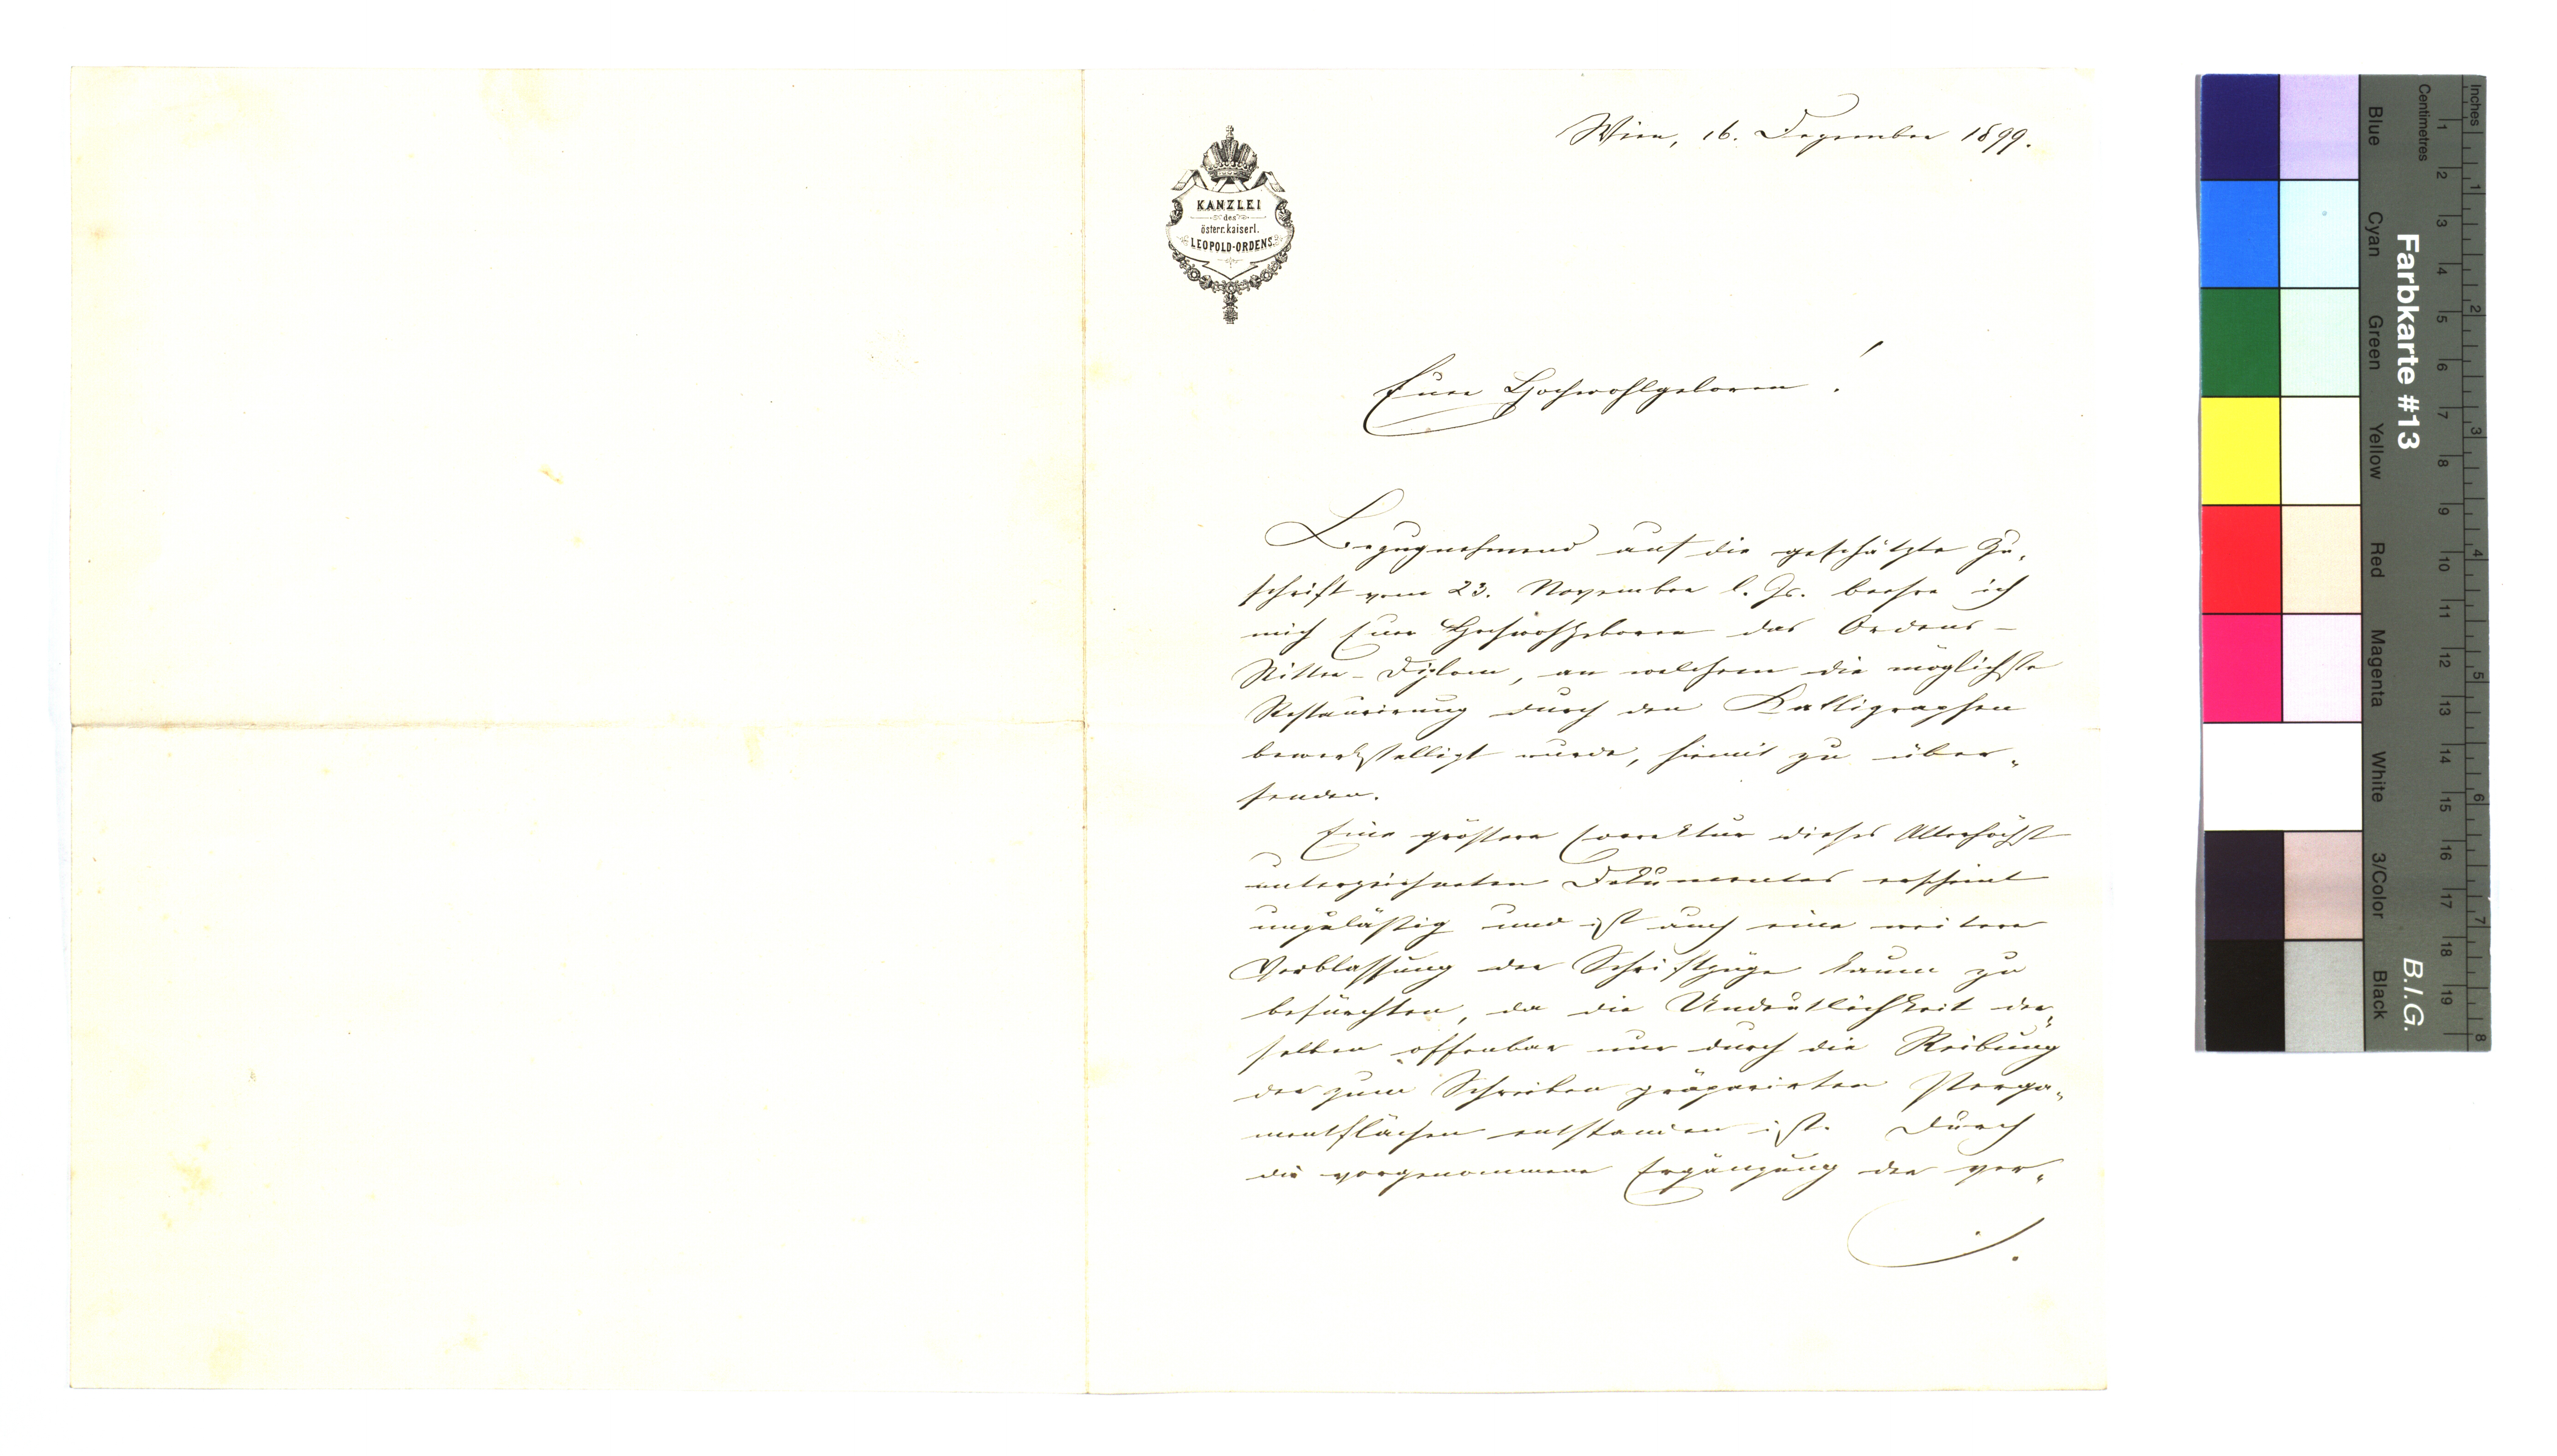 Wien, 16. Dezember 1899.
KANZLEI
des
österr. kaiserl.
LEOPOLD-ORDENS.
Euer Hochwohlgeboren!
Bezugnehmend auf die geschätzte Zu-
schrift vom 23. November l. Js. beehre ich
mich Euer Hochwohlgeboren das Ordens-
Ritter-Diplom, an welchem die möglichste
Restaurirung durch den Kalligraphen
bewerkstelligt wurde, hiemit zu über-
senden.
Eine größere Correktur dieses Allerhöchst
unterzeichneten Dokumentes erscheint
unzuläßig und ist auch eine weitere
Verblassung der Schriftzüge kaum zu
befürchten, da die Undeutlichkeit der-
selben offenbar nur durch die Reibung
der zum Schreiben präparirten Perga-
mentflächen entstanden ist. Durch
die vorgenommene Ergänzung der ver-
/.
Farbkarte #13
B.I.G.
Centimetres
Inches
Blue
Cyan
Green
Yellow
Red
Magenta
White
3/Color
Black
1 2 3 4 5 6 7 8 9 10 11 12 13 14 15 16 17 18 19
1 2 3 4 5 6 7 8